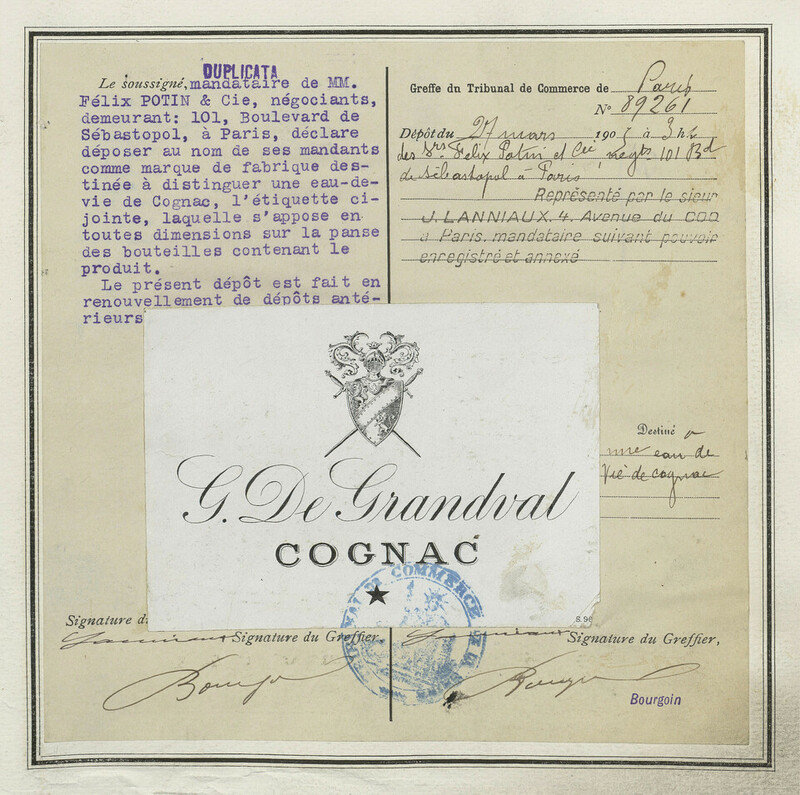 DUPLICATA
Le soussigné, mandataire de MM.
Félix POTIN & Cie, négociants,
demeurant: 101, Boulevard de
Sébastopol, à Paris, déclare
déposer au nom de ses mandants
comme marque de fabrique des-
tinée à distinguer une eau-de-
vie de Cognac, l'étiquette ci-
jointe, laquelle s'appose en
toutes dimensions sur la panse
des bouteilles contenant le
produit.
Le présent dépôt est fait en
renouvellement de dépôts anté-
rieurs
Greffe du Tribunal de Commerce de Paris
N° 89261
Dépôt du 27 mars 190 à 3 h
des Srs Felix Potin et Cie négts 101 Bd
de Sébastopol à Paris
Représenté par le sieur
J. LANNIAUX. 4. Avenue du COQ
à Paris. mandataire suivant pouvoir
enregistré et annexé
Destiné a
une eau de
Vie de cognac
G. De Grandval
COGNAC
S. 96
TRIBUNAL DE COMMERCE DE LA
Signature d
Signature du Greffier,
Signature du Greffier,
Bourgoin